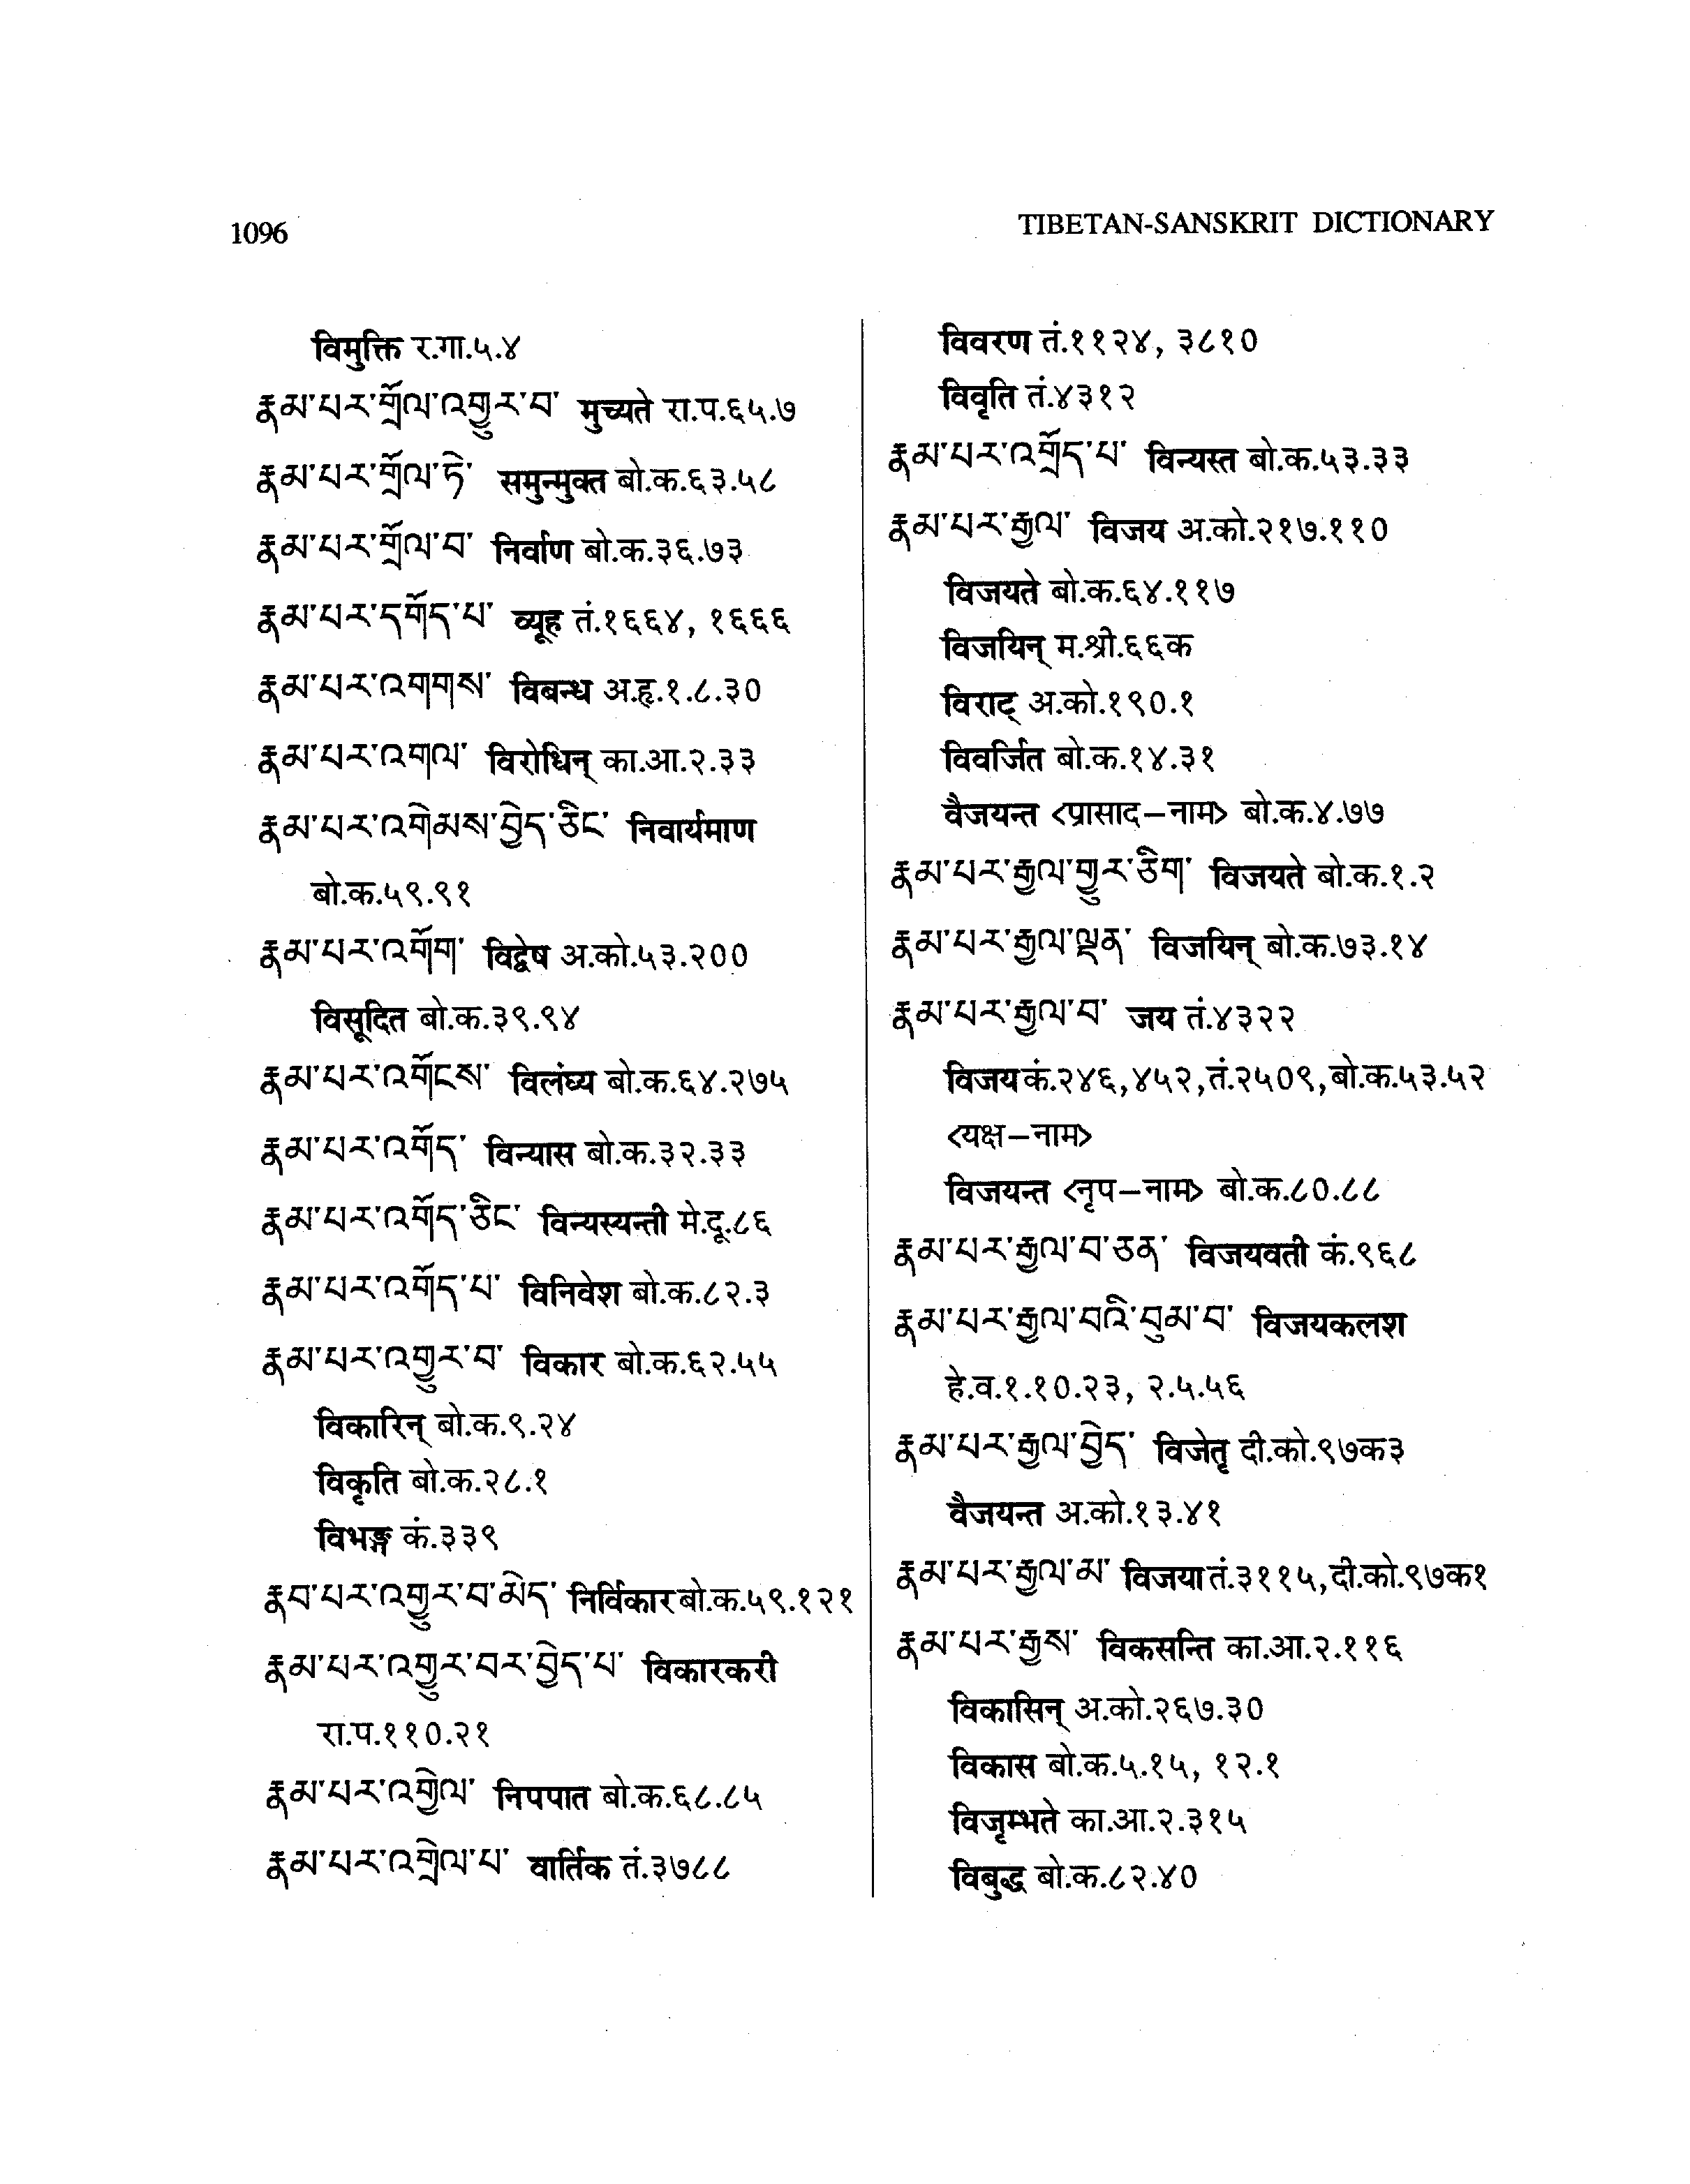 1096
TIBETAN-SANSKRIT DICTIONARY
विमुक्ति र.गा.५.४
རྣམ་པར་གྲོལ་འགྱུར་བ་ मुच्यते रा.प.६५.७
རྣམ་པར་གྲོལ་ཏེ་ समुन्मुक्त बो.क.६३.५८
རྣམ་པར་གྲོལ་བ་ निर्वाण बो.क.३६.७३
རྣམ་པར་དགོད་པ་ व्यूह तं.१६६४, १६६६
རྣམ་པར་འགགས་ विबन्ध अ.हृ.१.८.३०
རྣམ་པར་འགལ་ विरोधिन् का.आ.२.३३
རྣམ་པར་འགེམས་བྱེད་ཅིང་ निवार्यमाण
बो.क.५९.९१
རྣམ་པར་འགོག་ विद्वेष अ.को.५३.२००
विसूदित बो.क.३९.९४
རྣམ་པར་འགོངས་ विलंघ्य बो.क.६४.२७५
རྣམ་པར་འགོད་ विन्यास बो.क.३२.३३
རྣམ་པར་འགོད་ཅིང་ विन्यस्यन्ती मे.दू.८६
རྣམ་པར་འགོད་པ་ विनिवेश बो.क.८२.३
རྣམ་པར་འགྱུར་བ་ विकार बो.क.६२.५५
विकारिन् बो.क.९.२४
विकृति बो.क.२८.१
विभङ्ग कं.३३९
རྣབ་པར་འགྱུར་བ་མེད་ निर्विकार बो.क.५९.१२१
རྣམ་པར་འགྱུར་བར་བྱེད་པ་ विकारकरी
रा.प.११०.२१
རྣམ་པར་འགྱེལ་ निपपात बो.क.६८.८५
རྣམ་པར་འགྲེལ་པ་ वार्तिक तं.३७८८
विवरण तं.११२४, ३८१०
विवृति तं.४३१२
རྣམ་པར་འགྲོད་པ་ विन्यस्त बो.क.५३.३३
རྣམ་པར་རྒྱལ་ विजय अ.को.२१७.११०
विजयते बो.क.६४.११७
विजयिन् म.श्री.६६क
विराट् अ.को.१९०.१
विवर्जित बो.क.१४.३१
वैजयन्त <प्रासाद–नाम> बो.क.४.७७
རྣམ་པར་རྒྱལ་གྱུར་ཅིག་ विजयते बो.क.१.२
རྣམ་པར་རྒྱལ་ལྡན་ विजयिन् बो.क.७३.१४
རྣམ་པར་རྒྱལ་བ་ जय तं.४३२२
विजय कं.२४६,४५२,तं.२५०९,बो.क.५३.५२
<यक्ष–नाम>
विजयन्त <नृप–नाम> बो.क.८०.८८
རྣམ་པར་རྒྱལ་བ་ཅན་ विजयवती कं.९६८
རྣམ་པར་རྒྱལ་བའི་བུམ་བ་ विजयकलश
हे.व.१.१०.२३, २.५.५६
རྣམ་པར་རྒྱལ་བྱེད་ विजेतृ दी.को.९७क३
वैजयन्त अ.को.१३.४१
རྣམ་པར་རྒྱལ་མ་ विजया तं.३११५,दी.को.९७क१
རྣམ་པར་རྒྱས་ विकसन्ति का.आ.२.११६
विकासिन् अ.को.२६७.३०
विकास बो.क.५.१५, १२.१
विजृम्भते का.आ.२.३१५
विबुद्ध बो.क.८२.४०